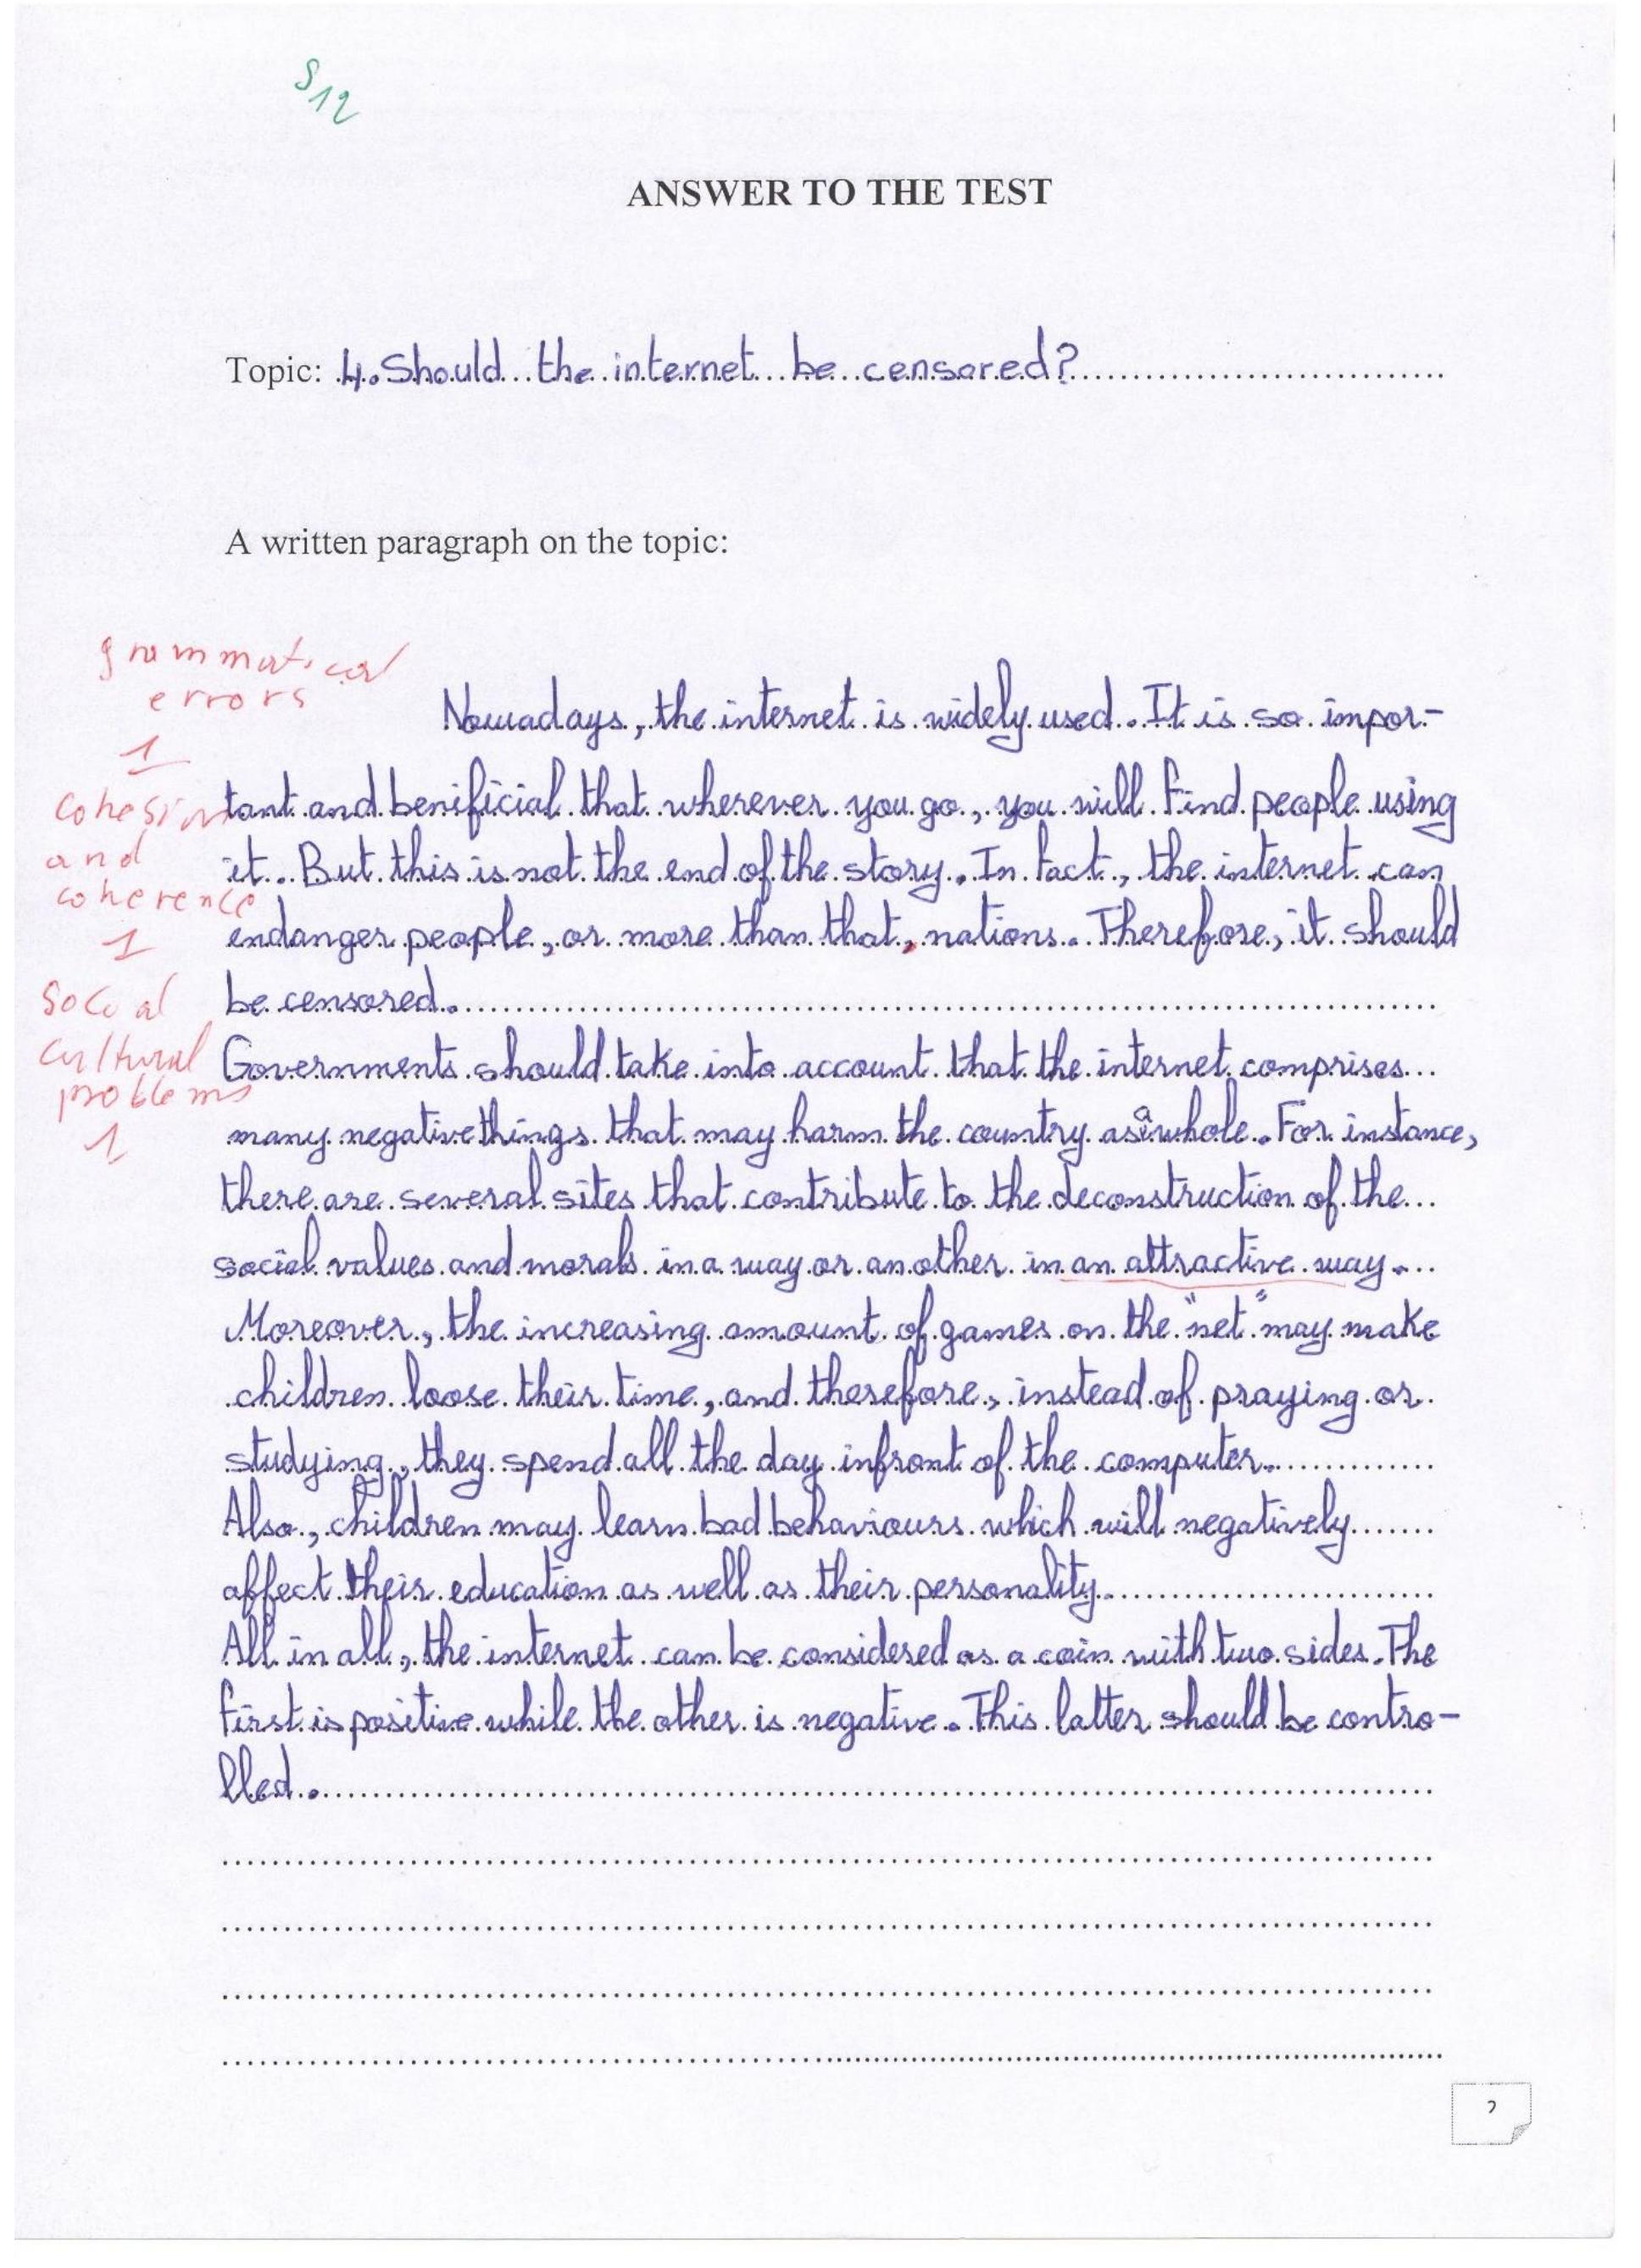 S12
ANSWER TO THE TEST
Topic: 4. Should the internet be censored?
A written paragraph on the topic:
grammatical
errors
1
cohesion
and
coherence
1
Social
cultural
problems
1
Nowadays, the internet is widely used. It is so impor-
tant and benificial that wherever you go, you will find people using
it. But this is not the end of the story. In fact, the internet can
endanger people, or more than that, nations. Therefore, it should
be censored.
Governments should take into account that the internet comprises
many negative things that may harm the country as a whole. For instance,
there are several sites that contribute to the deconstruction of the
social values and morals in a way or another in an attractive way.
Moreover, the increasing amount of games on the "net" may make
children loose their time, and therefore, instead of praying or
studying, they spend all the day infront of the computer.
Also, children may learn bad behaviours which will negatively
affect their education as well as their personality.
All in all, the internet can be considered as a coin with two sides. The
first is positive while the other is negative. This latter should be contro-
lled.
2